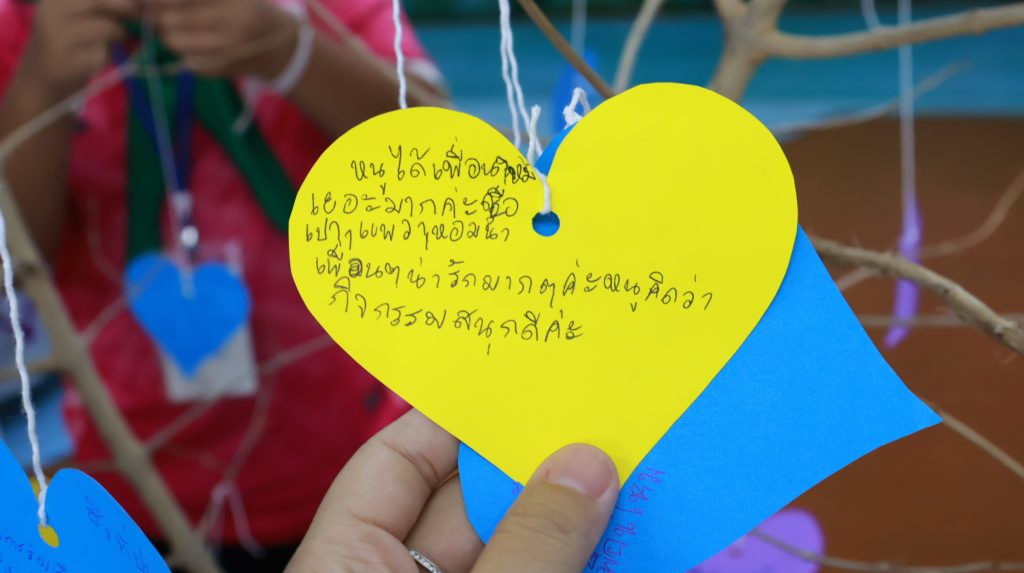 หนูได้เพื่อนใหม่
เยอะมากค่ะชื่อ
เปาๆแพวๆหอมน้ำ
เพื่อนๆน่ารักมากๆค่ะหนูคิดว่า
กิจกรรมสนุกดีค่ะ